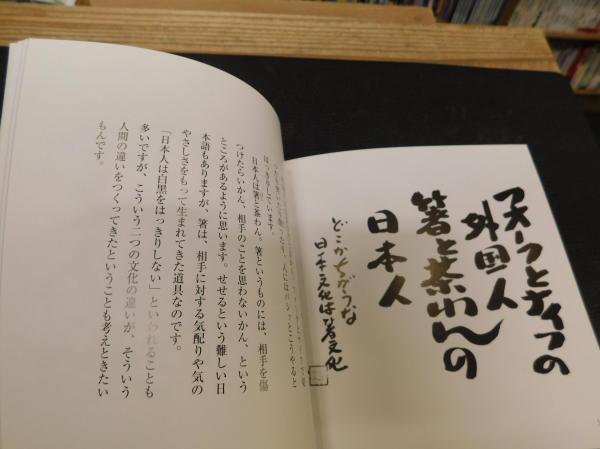 フォークとナイフの
外国人
箸と茶わんの
日本人
どこかちがうな
日本文化は箸文化
はっきりしています。
日本人は箸と茶わん。箸というものには、相手を傷
つけたらいかん、相手のことを思わないかん、という
ところがあるように思います。せせるという難しい日
本語もありますが、箸は、相手に対する気配りや気の
やさしさをもって生まれてきた道具なのです。
「日本人は白黒をはっきりしない」といわれることも
多いですが、こういう二つの文化の違いが、そういう
人間の違いをつくってきたということも考えときたい
もんです。